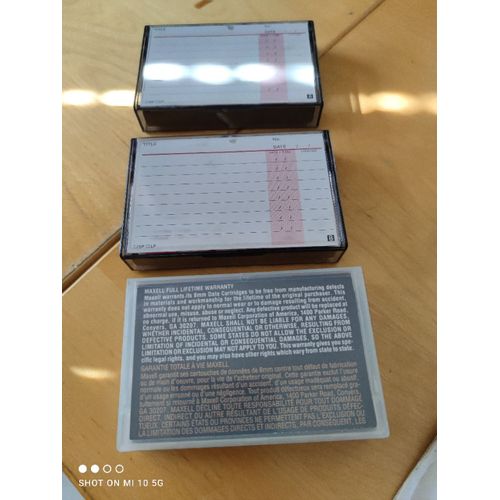 TITLE No.
DATE / /
TITLE No.
DATE / /
□SP □LP
MAXELL FULL LIFETIME WARRANTY
Maxell warrants its 8mm Data Cartridges to be free from manufacturing defects
in materials and workmanship for the lifetime of the original purchaser. This
warranty does not apply to normal wear or to damage resulting from accident,
abnormal use, misuse, abuse or neglect. Any defective product will be replaced at
no charge, if it is returned to Maxell Corporation of America, 1400 Parker Road,
Conyers, GA 30207. MAXELL SHALL NOT BE LIABLE FOR ANY DAMAGES,
WHETHER INCIDENTAL, CONSEQUENTIAL OR OTHERWISE, RESULTING FROM
DEFECTIVE PRODUCTS. SOME STATES DO NOT ALLOW THE EXCLUSION OR
LIMITATION OF INCIDENTAL OR CONSEQUENTIAL DAMAGES, SO THE ABOVE
LIMITATION OR EXCLUSION MAY NOT APPLY TO YOU. This warranty gives you spe-
cific legal rights, and you may also have other rights which vary from state to state.
GARANTIE TOTALE À VIE MAXELL
Maxell garantit ses cartouches de données de 8mm contre tout défaut de fabrication
ou de main d'oeuvre, pour la vie de l'acheteur original. Cette garantie exclut l'usure
normale ou résultant d'un accident, d'un usage inadéquat ou abusif
d'un mauvais usage ou d'une négligence. Tout produit défectueux sera remplacé gra-
tuitement, sur retour à Maxell Corporation of America, 1400 Parker Road, Conyers,
GA 30207. MAXELL DÉCLINE TOUTE RESPONSABILITÉ POUR TOUT DOMMAGE,
DIRECT, INDIRECT OU AUTRE RÉSULTANT DE L'USAGE DE PRODUITS DÉFEC-
TUEUX. CERTAINS ÉTATS OU PROVINCES NE PERMETTENT PAS L'EXCLUSION OU
LA LIMITATION DES DOMMAGES DIRECTS ET INDIRECTS, PAR CONSÉQUENT, LES
SHOT ON MI 10 5G